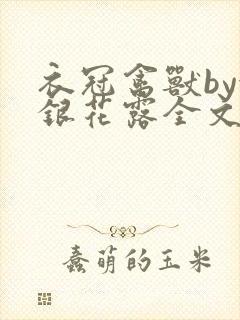 衣冠禽獸by
銀花露全文
蠢萌的玉米